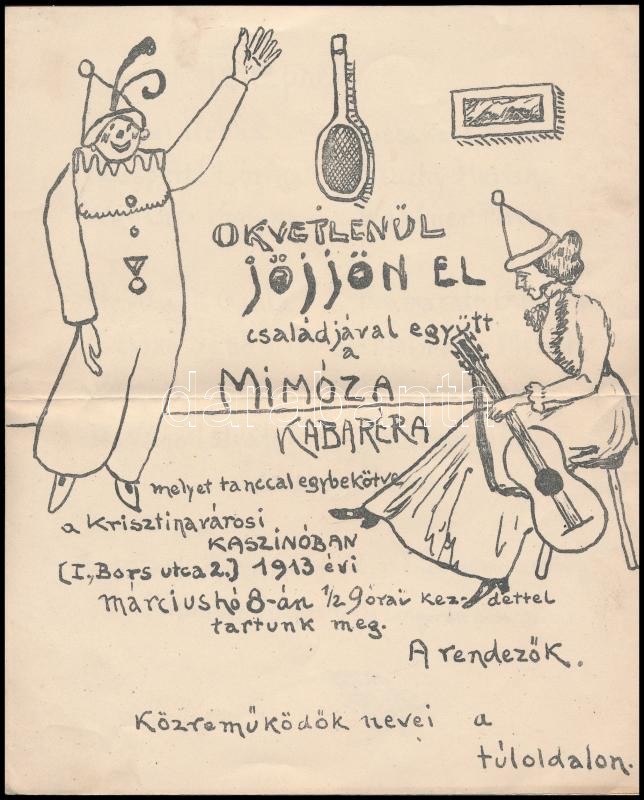 OKVETLENÜL
JÖJJÖN EL
családjával együtt
a
MIMÓZA
KABARÉRA
melyet tánccal egybekötve
a Krisztinavárosi
KASZINÓBAN
(I., Bors utca 2.) 1913 évi
márciushó 8-án 1/2 9 órai kezdettel
tartunk meg.
A rendezők.
Közreműködők nevei a
túloldalon.
darabanth